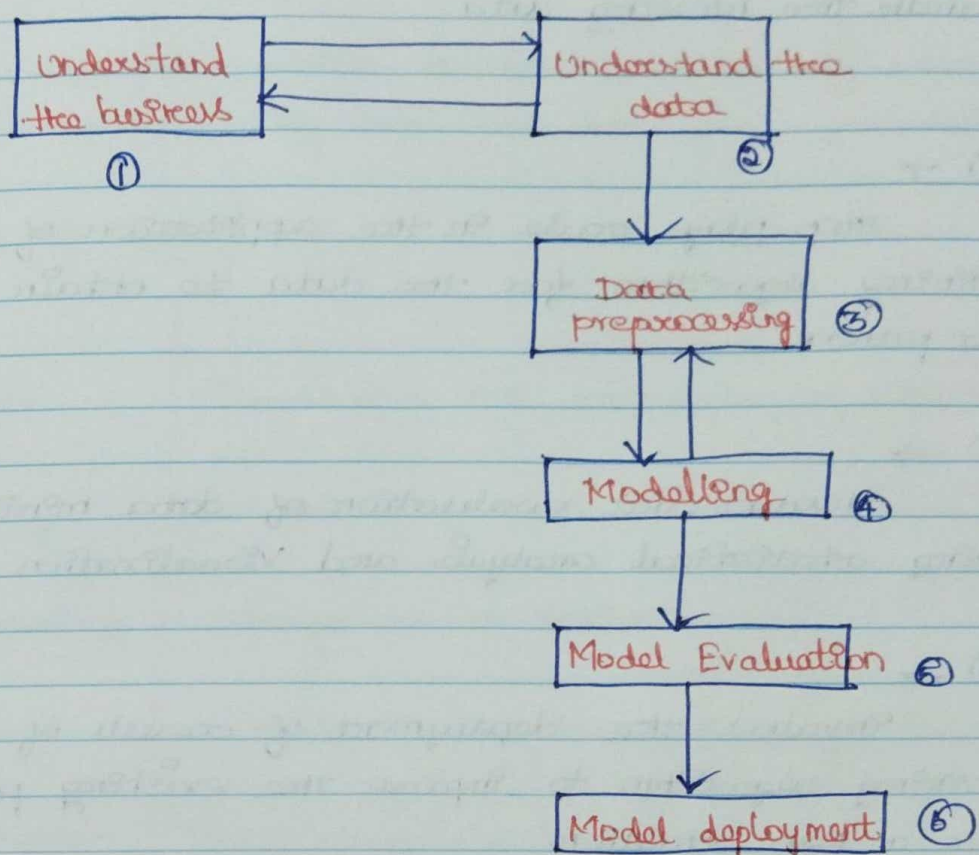 Understand
the business
①
Understand the
data
②
Data
preprocessing
③
Modelling
④
Model Evaluation
⑤
Model deployment
⑥